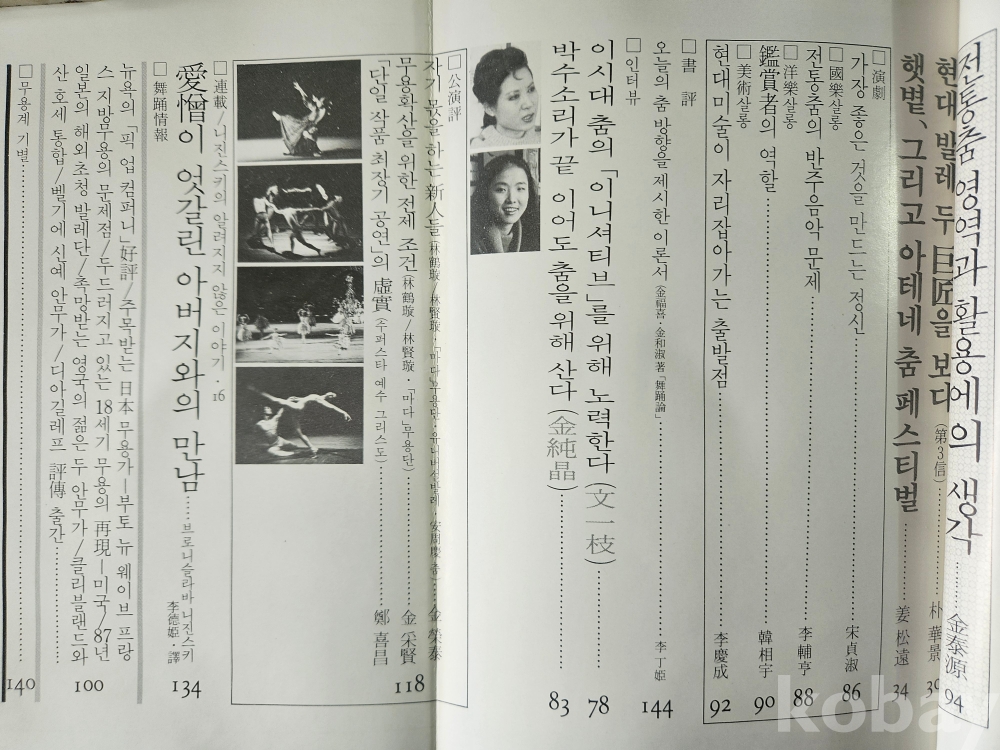 전통춤 영역과 활용에의 생각 ········ 金泰源 94
현대 발레 두 巨匠을 보다 (第3信) ········ 朴華景 39
햇볕, 그리고 아테네 춤 페스티벌 ········ 姜松遠 34
□演劇
가장 좋은 것을 만드는 정신 ········ 宋貞淑 86
□國樂살롱
전통춤의 반주음악 문제 ········ 李輔亨 88
□洋樂살롱
鑑賞者의 역할 ········ 韓相宇 90
□美術살롱
현대미술이 자리잡아가는 출발점 ········ 李慶成 92
□書評
오늘의 춤 방향을 제시한 이론서 (金幅喜·金和淑著「舞踊論」) ········ 李丁姬 144
□인터뷰
이시대 춤의 「이니셔티브」를 위해 노력한다 (文一枝) ········ 78
박수소리가 끝 이어도 춤을 위해 산다 (金純晶) ········ 83
□公演評
자기 몫을 하는 新人들 (林鶴璇/林賢璇·「마다」무용단·유니버설발레 安周慶 춤) ···· 金榮泰
무용확산을 위한 전제 조건 (林鶴璇/林賢璇·「마다」무용단) ········ 金采賢 118
「단일 작품 최장기 공연」의 虛實 (수퍼스타 예수 그리스도) ········ 鄭喜昌
□連載/니진스키의 알려지지 않은 이야기·16
愛憎이 엇갈린 아버지와의 만남 ······ 브로니슬라바 니진스키
李德姬·譯 134
□舞踊情報
뉴욕의 「픽 업 컴퍼니」好評/주목받는 日本 무용가―부토 뉴 웨이브 프랑
스 지방무용의 문제점/두드러지고 있는 18세기 무용의 再現―미국/87년
일본의 해외 초청 발레단/촉망받는 영국의 젊은 두 안무가/클리블랜드와
산 호세 통합/벨기에 신예 안무가/디아길레프 評傳 출간 ········ 100
□무용계 기별 ········ 140
koba